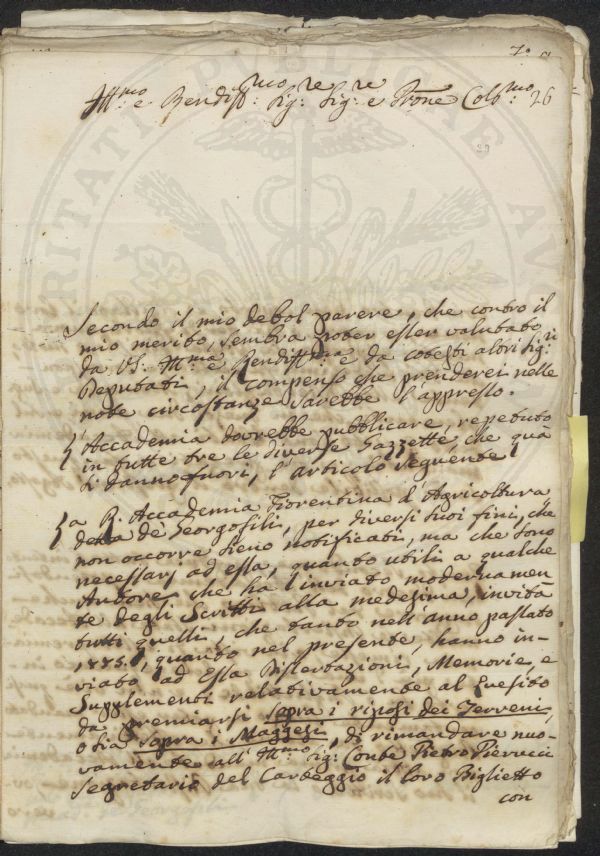 7º
Ill:mo e Rendiss:mo Sig:re Sig:re e Prone Colt:mo 26
Secondo il mio debol parere, che contro il
mio merito, sembra poter esser valutato
da VS: Ill:ma e Rendiss:ma e da cotesti altri Sig:ri
Deputati, il compenso che prenderei nelle
note circostanze sarebbe l'appresso.
L'Accademia dovrebbe pubblicare, repetuto
in tutte tre le diverse Gazzette, che quà
si danno fuori, l'articolo seguente
La R. Accademia Fiorentina d'Agricoltura
detta de' Georgofili, per diversi suoi fini, che
non occorre sieno notificati, ma che sono
necessarj ad essa, quando utili a qualche
Autore che ha inviato modernamen
te degli Scritti alla medesima, invita
tutti quelli, che tanto nell'anno passato
1785, quanto nel presente, hanno in-
viato ad Essa Dissertazioni, Memorie, e
Supplementi relativamente al Quesito
da premiarsi sopra i riposi dei Terreni,
o sia sopra i Maggesi, di rimandare nuo-
vamente all'Ill:mo Sig: Conte Pietro Pierucci
Segretario del Carteggio il loro Biglietto
con